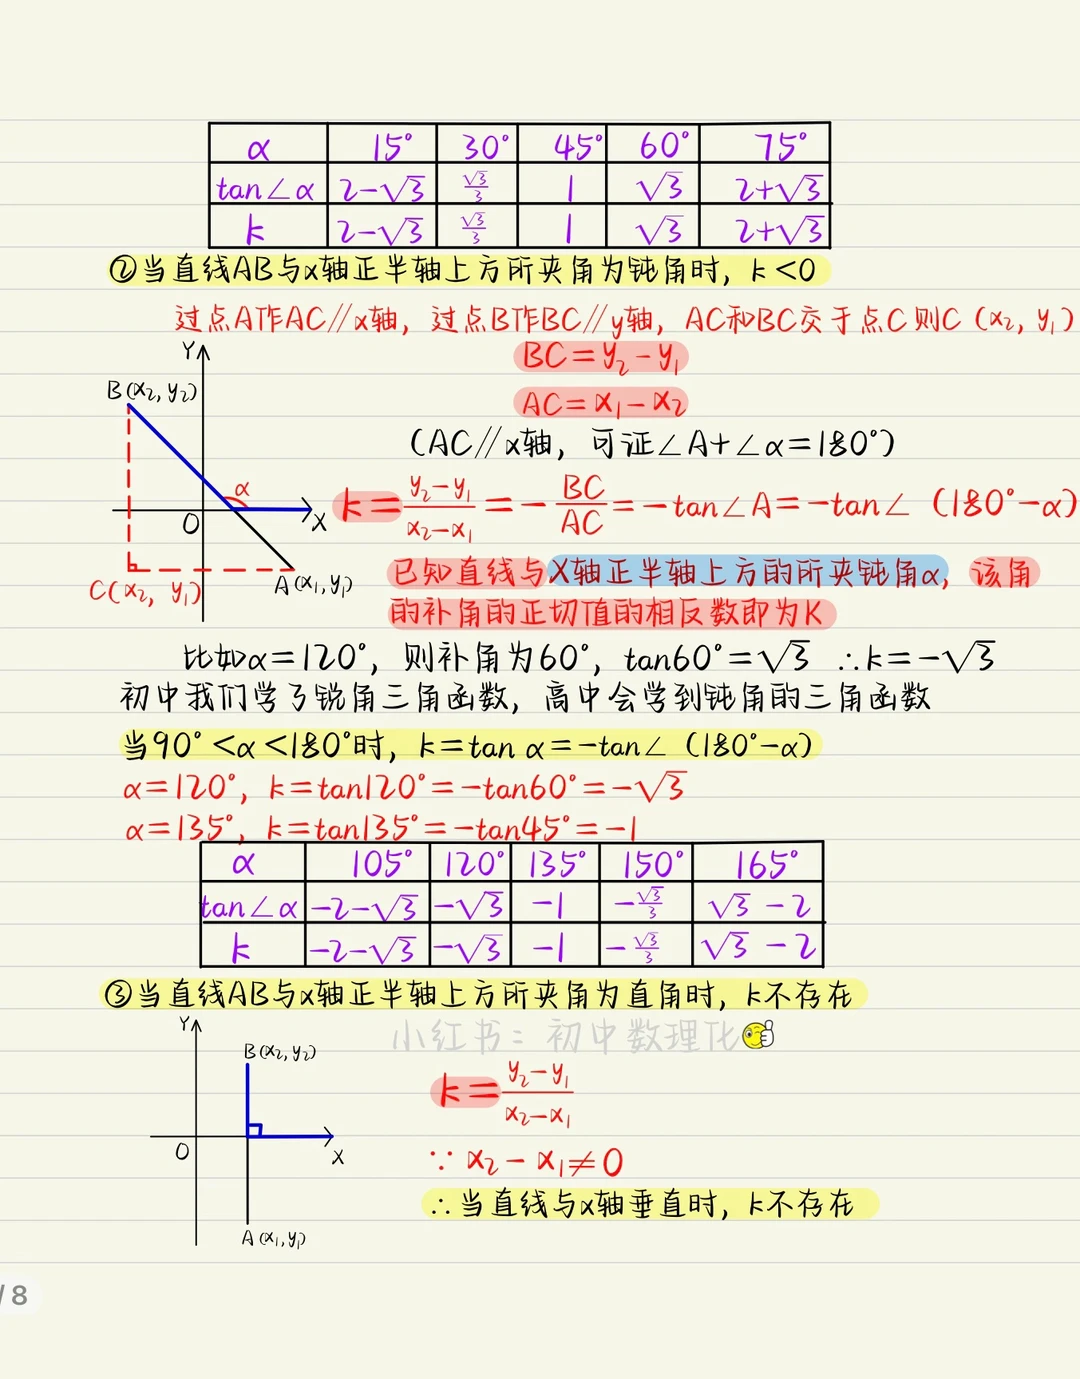 α 15° 30° 45° 60° 75°
tan∠α 2-√3 √3/3 1 √3 2+√3
k 2-√3 √3/3 1 √3 2+√3
②当直线AB与x轴正半轴上方所夹角为钝角时, k<0
过点A作AC∥x轴, 过点B作BC∥y轴, AC和BC交于点C则C (x₂, y₁)
BC=y₂-y₁
AC=x₁-x₂
(AC∥x轴, 可证∠A+∠α=180°)
k=(y₂-y₁)/(x₂-x₁)=-BC/AC=-tan∠A=-tan∠ (180°-α)
Y
B(x₂,y₂)
α
O
X
C(x₂, y₁)
A(x₁,y₁)
已知直线与X轴正半轴上方的所夹钝角α, 该角
的补角的正切值的相反数即为K
比如α=120°, 则补角为60°, tan60°=√3 ∴k=-√3
初中我们学了锐角三角函数, 高中会学到钝角的三角函数
当90°<α<180°时, k=tan α=-tan∠ (180°-α)
α=120°, k=tan120°=-tan60°=-√3
α=135°, k=tan135°=-tan45°=-1
α 105° 120° 135° 150° 165°
tan∠α -2-√3 -√3 -1 -√3/3 √3-2
k -2-√3 -√3 -1 -√3/3 √3-2
③当直线AB与x轴正半轴上方所夹角为直角时, k不存在
小红书: 初中数理化
Y
B(x₂,y₂)
O
X
A(x₁,y₁)
k=(y₂-y₁)/(x₂-x₁)
∵ x₂-x₁≠0
∴当直线与x轴垂直时, k不存在
/8